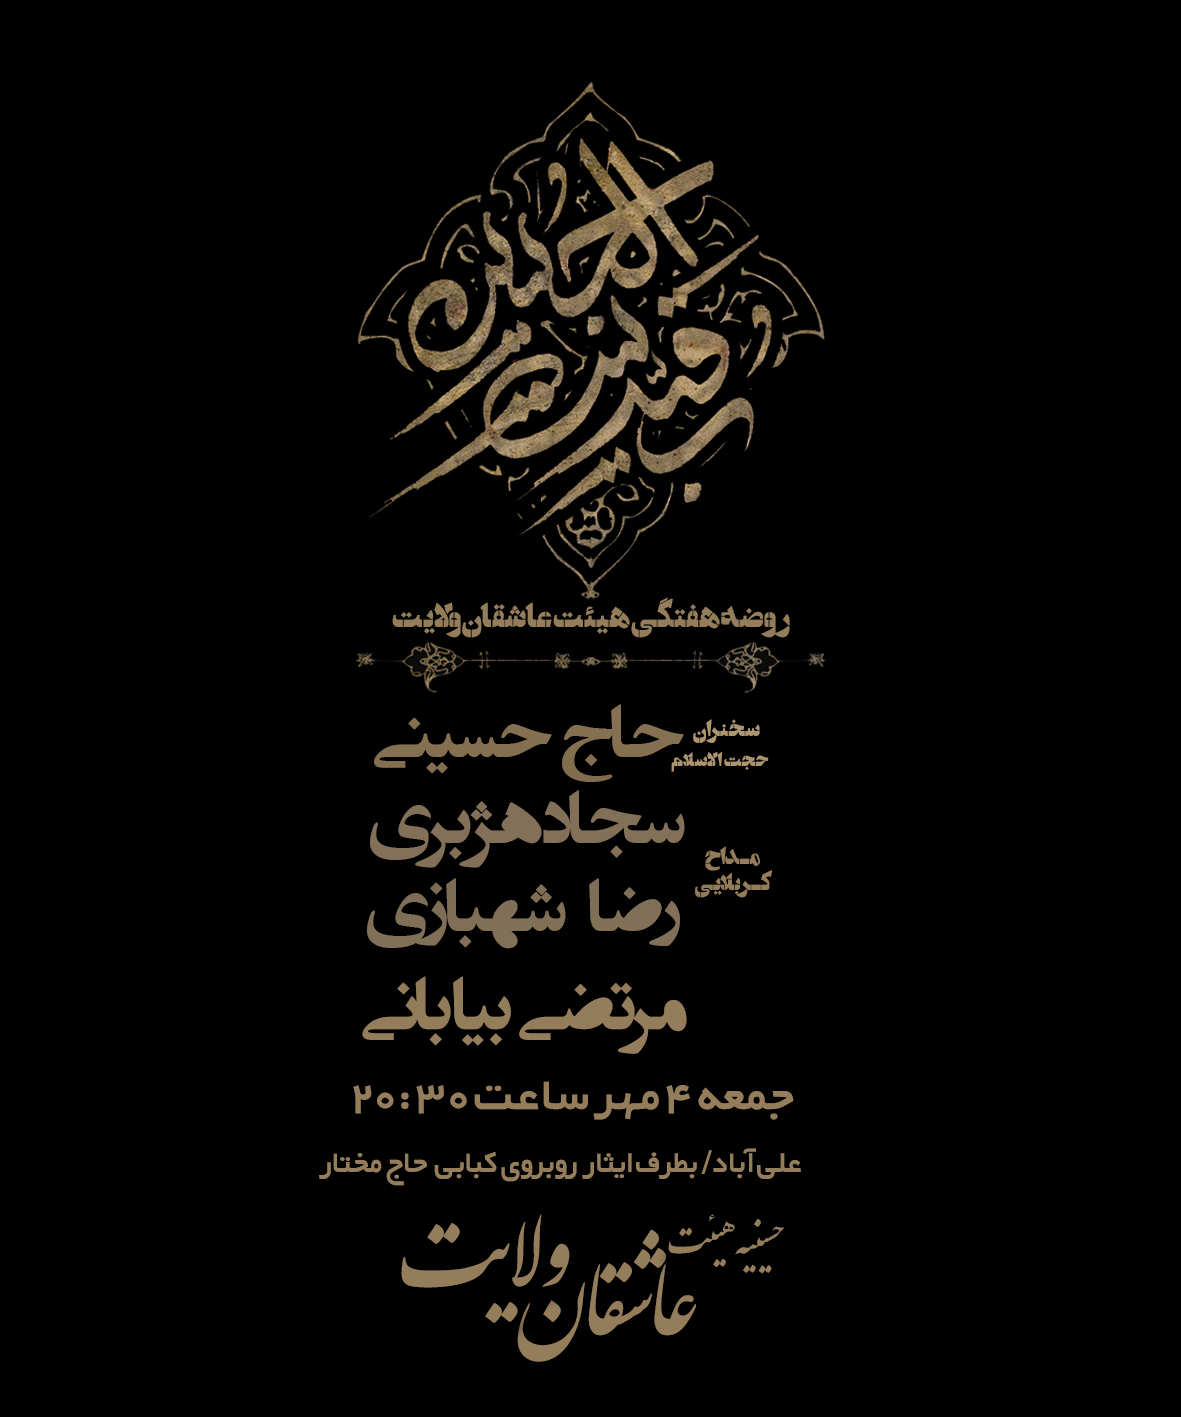 رقیه بنت الحسین
روضه هفتگی هیئت عاشقان ولایت
سخنران
حجت الاسلام
حاج حسینی
مداح
کربلایی
سجاد هژبری
رضا شهبازی
مرتضی بیابانی
جمعه ۴ مهر ساعت ۲۰:۳۰
علی آباد/ بطرف ایثار روبروی کبابی حاج مختار
حسینیه هیئت
عاشقان ولایت